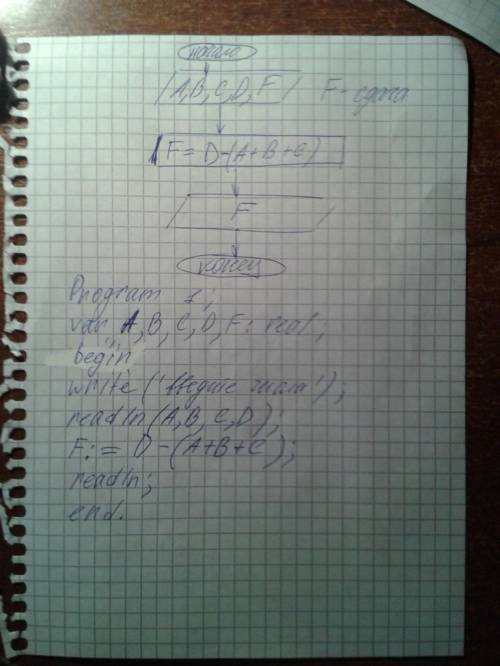 начало
A, B, C, D, F F - сдача
F = D-(A+B+C)
F
конец
Program 1;
var A, B, C, D, F: real;
begin
write ('Введите числа');
readln (A, B, C, D);
F:= D-(A+B+C);
readln;
end.